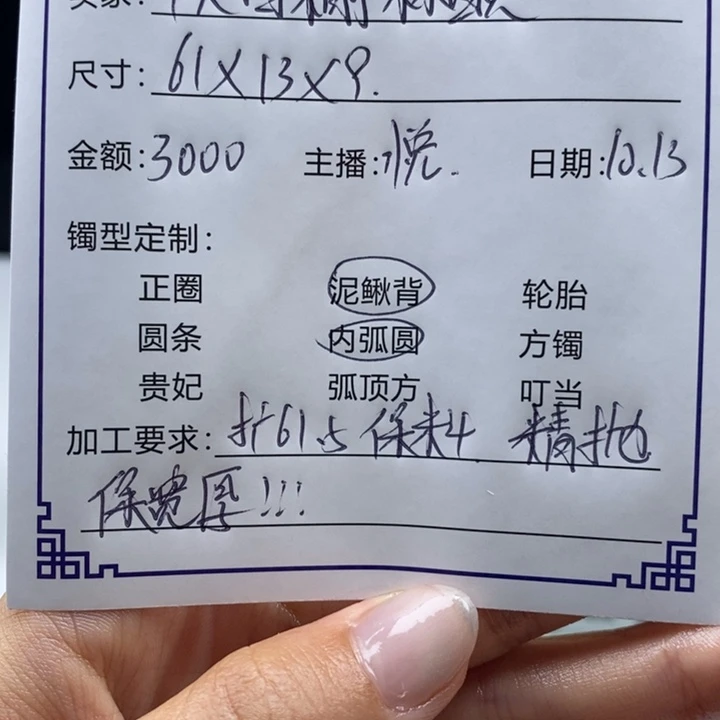 卖家:
尺寸: 61X13X9.
金额:3000 主播:悦. 日期:10.13
镯型定制:
正圈 泥鳅背 轮胎
圆条 内弧圆 方镯
贵妃 弧顶方 叮当
加工要求: 扩61.5 保料 精抛
保宽厚!!!